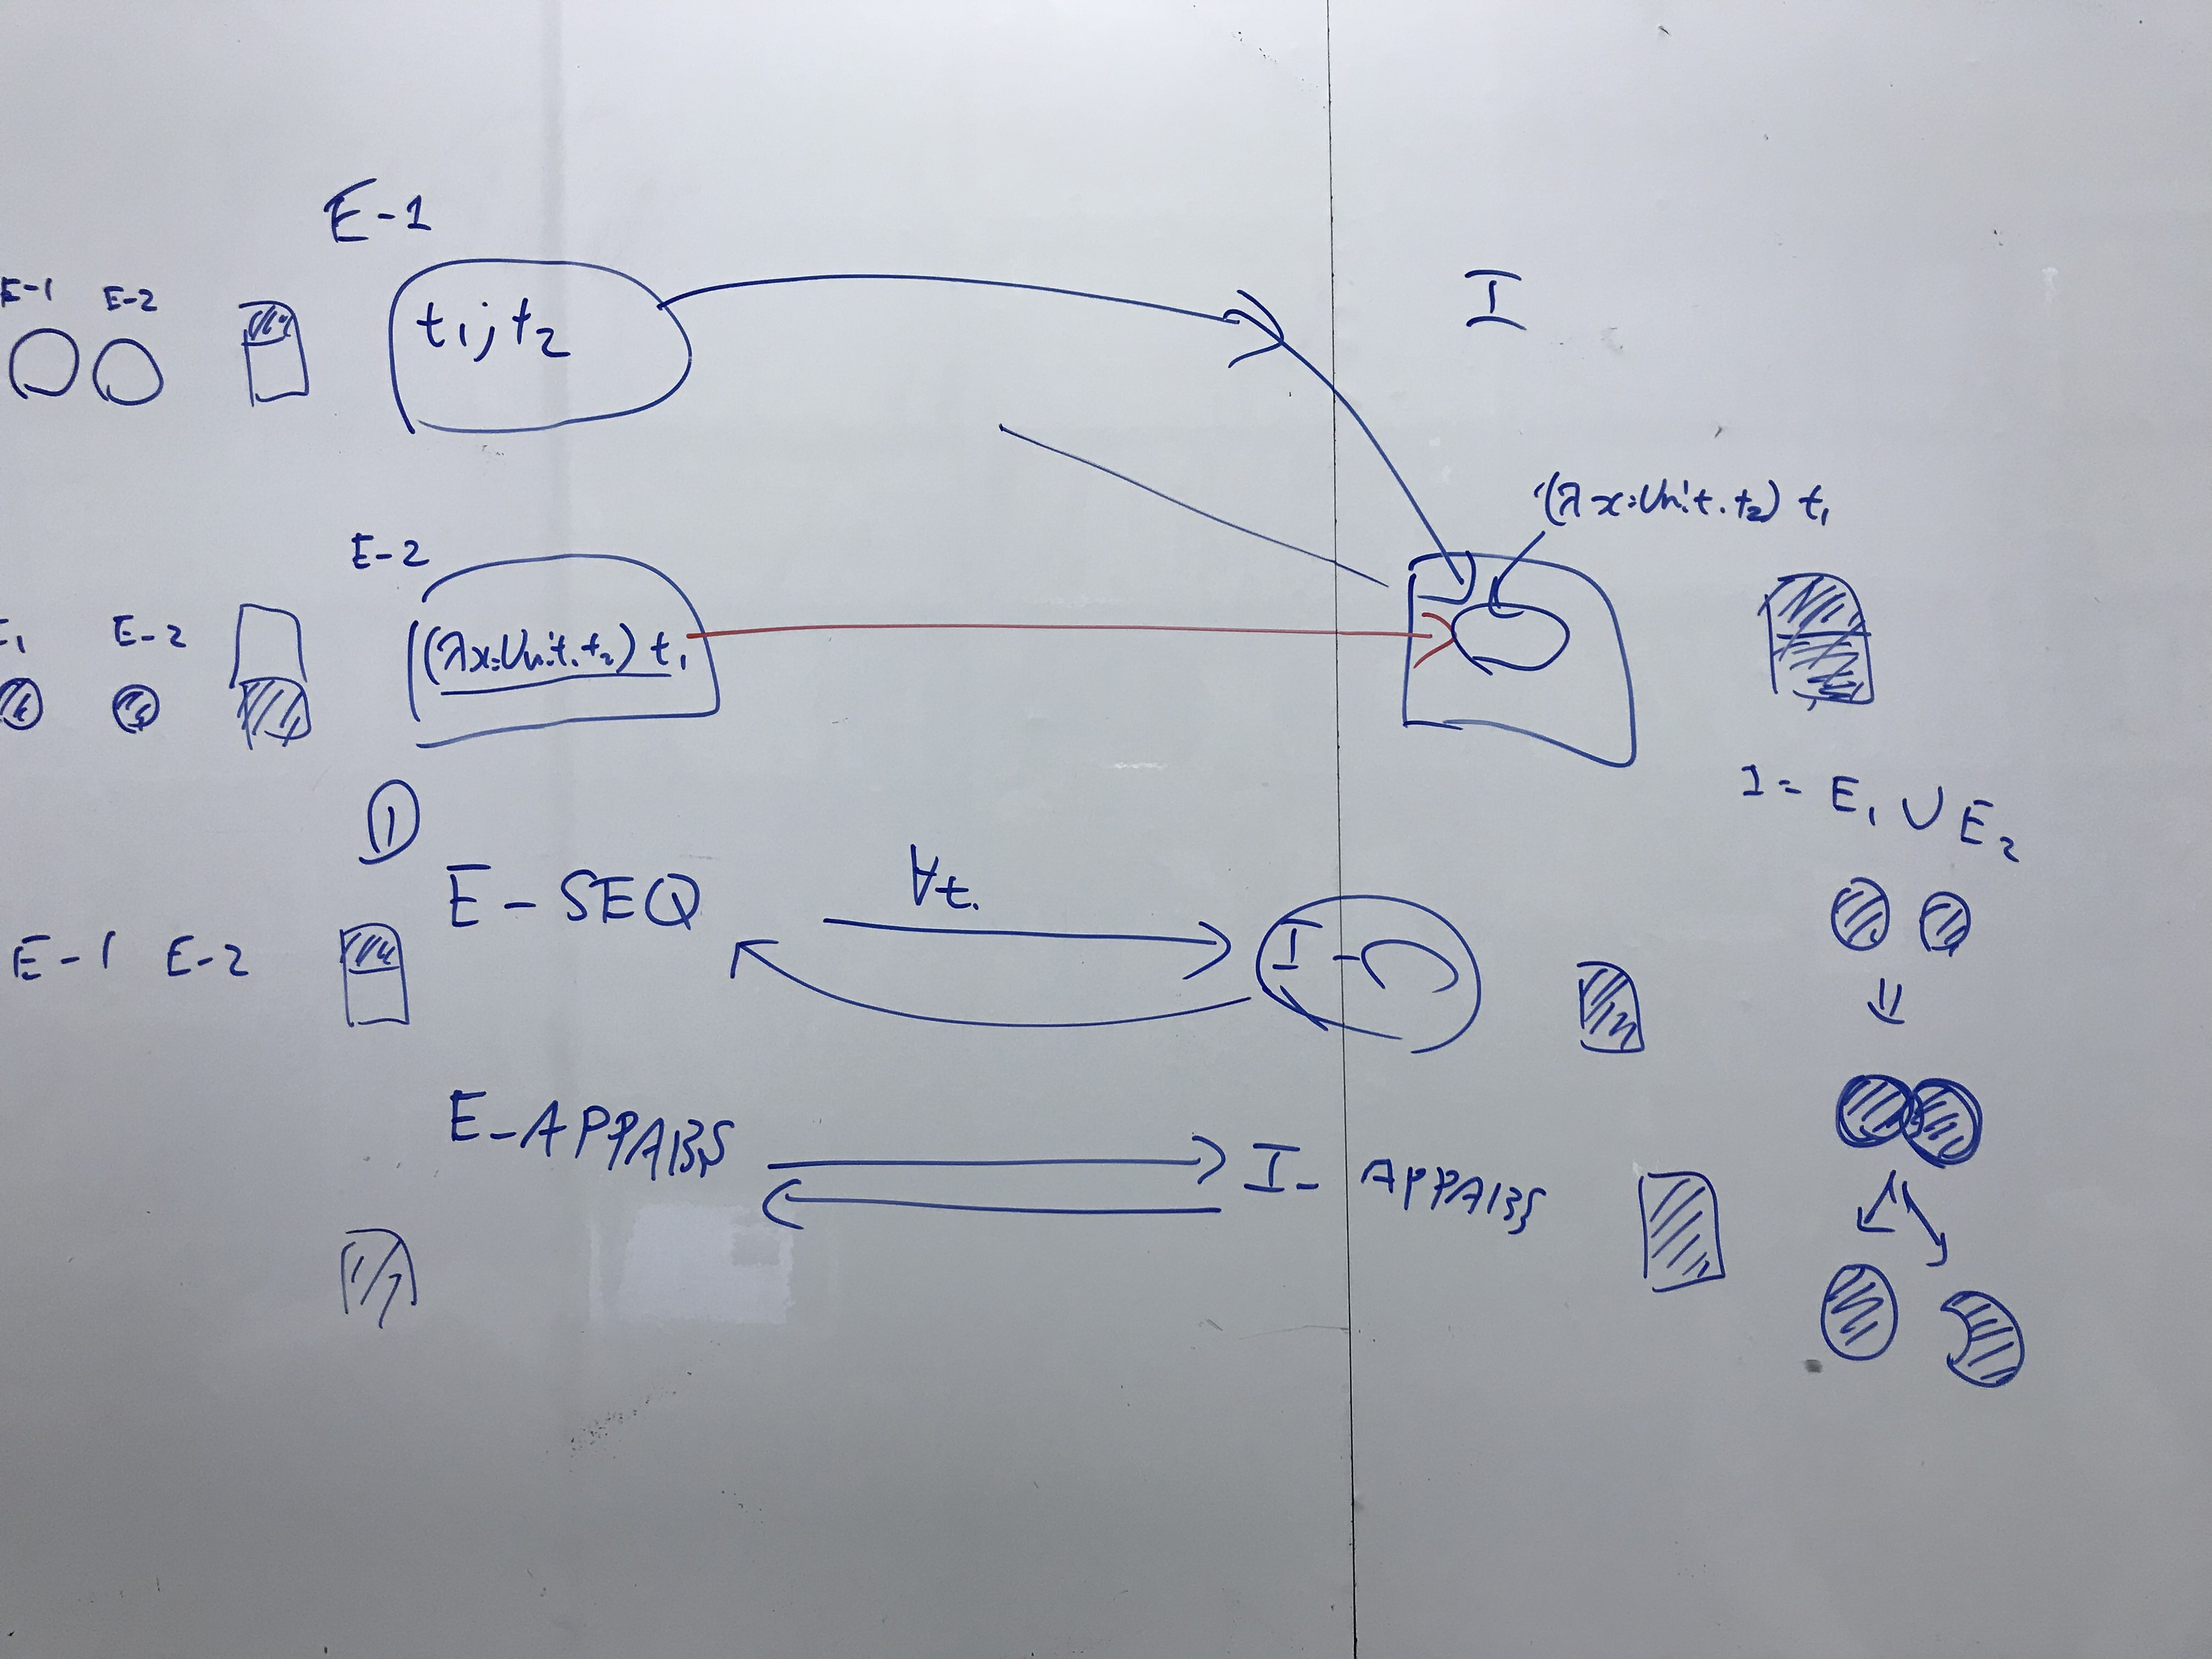 E-1
I
E-1 E-2
t₁;t₂
(λx:Unit.t₂) t₁
E-2
E₁ E-2
(λx:Unit.t₂) t₁
I = E₁ ∪ E₂
①
E-SEQ
∀t.
I-
E-1 E-2
=
E-APPABS
I-APPABS